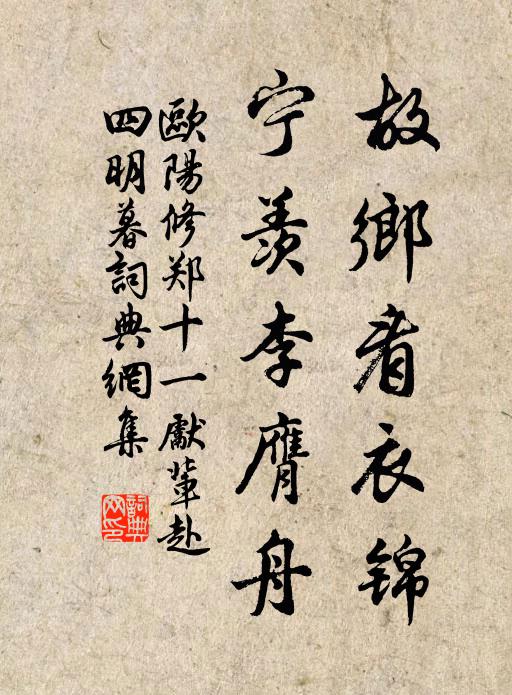 故鄉看衣锦
宁羨李膺舟
歐陽修郑十一獻輩赴
四明暮詞典網集
詞典网印